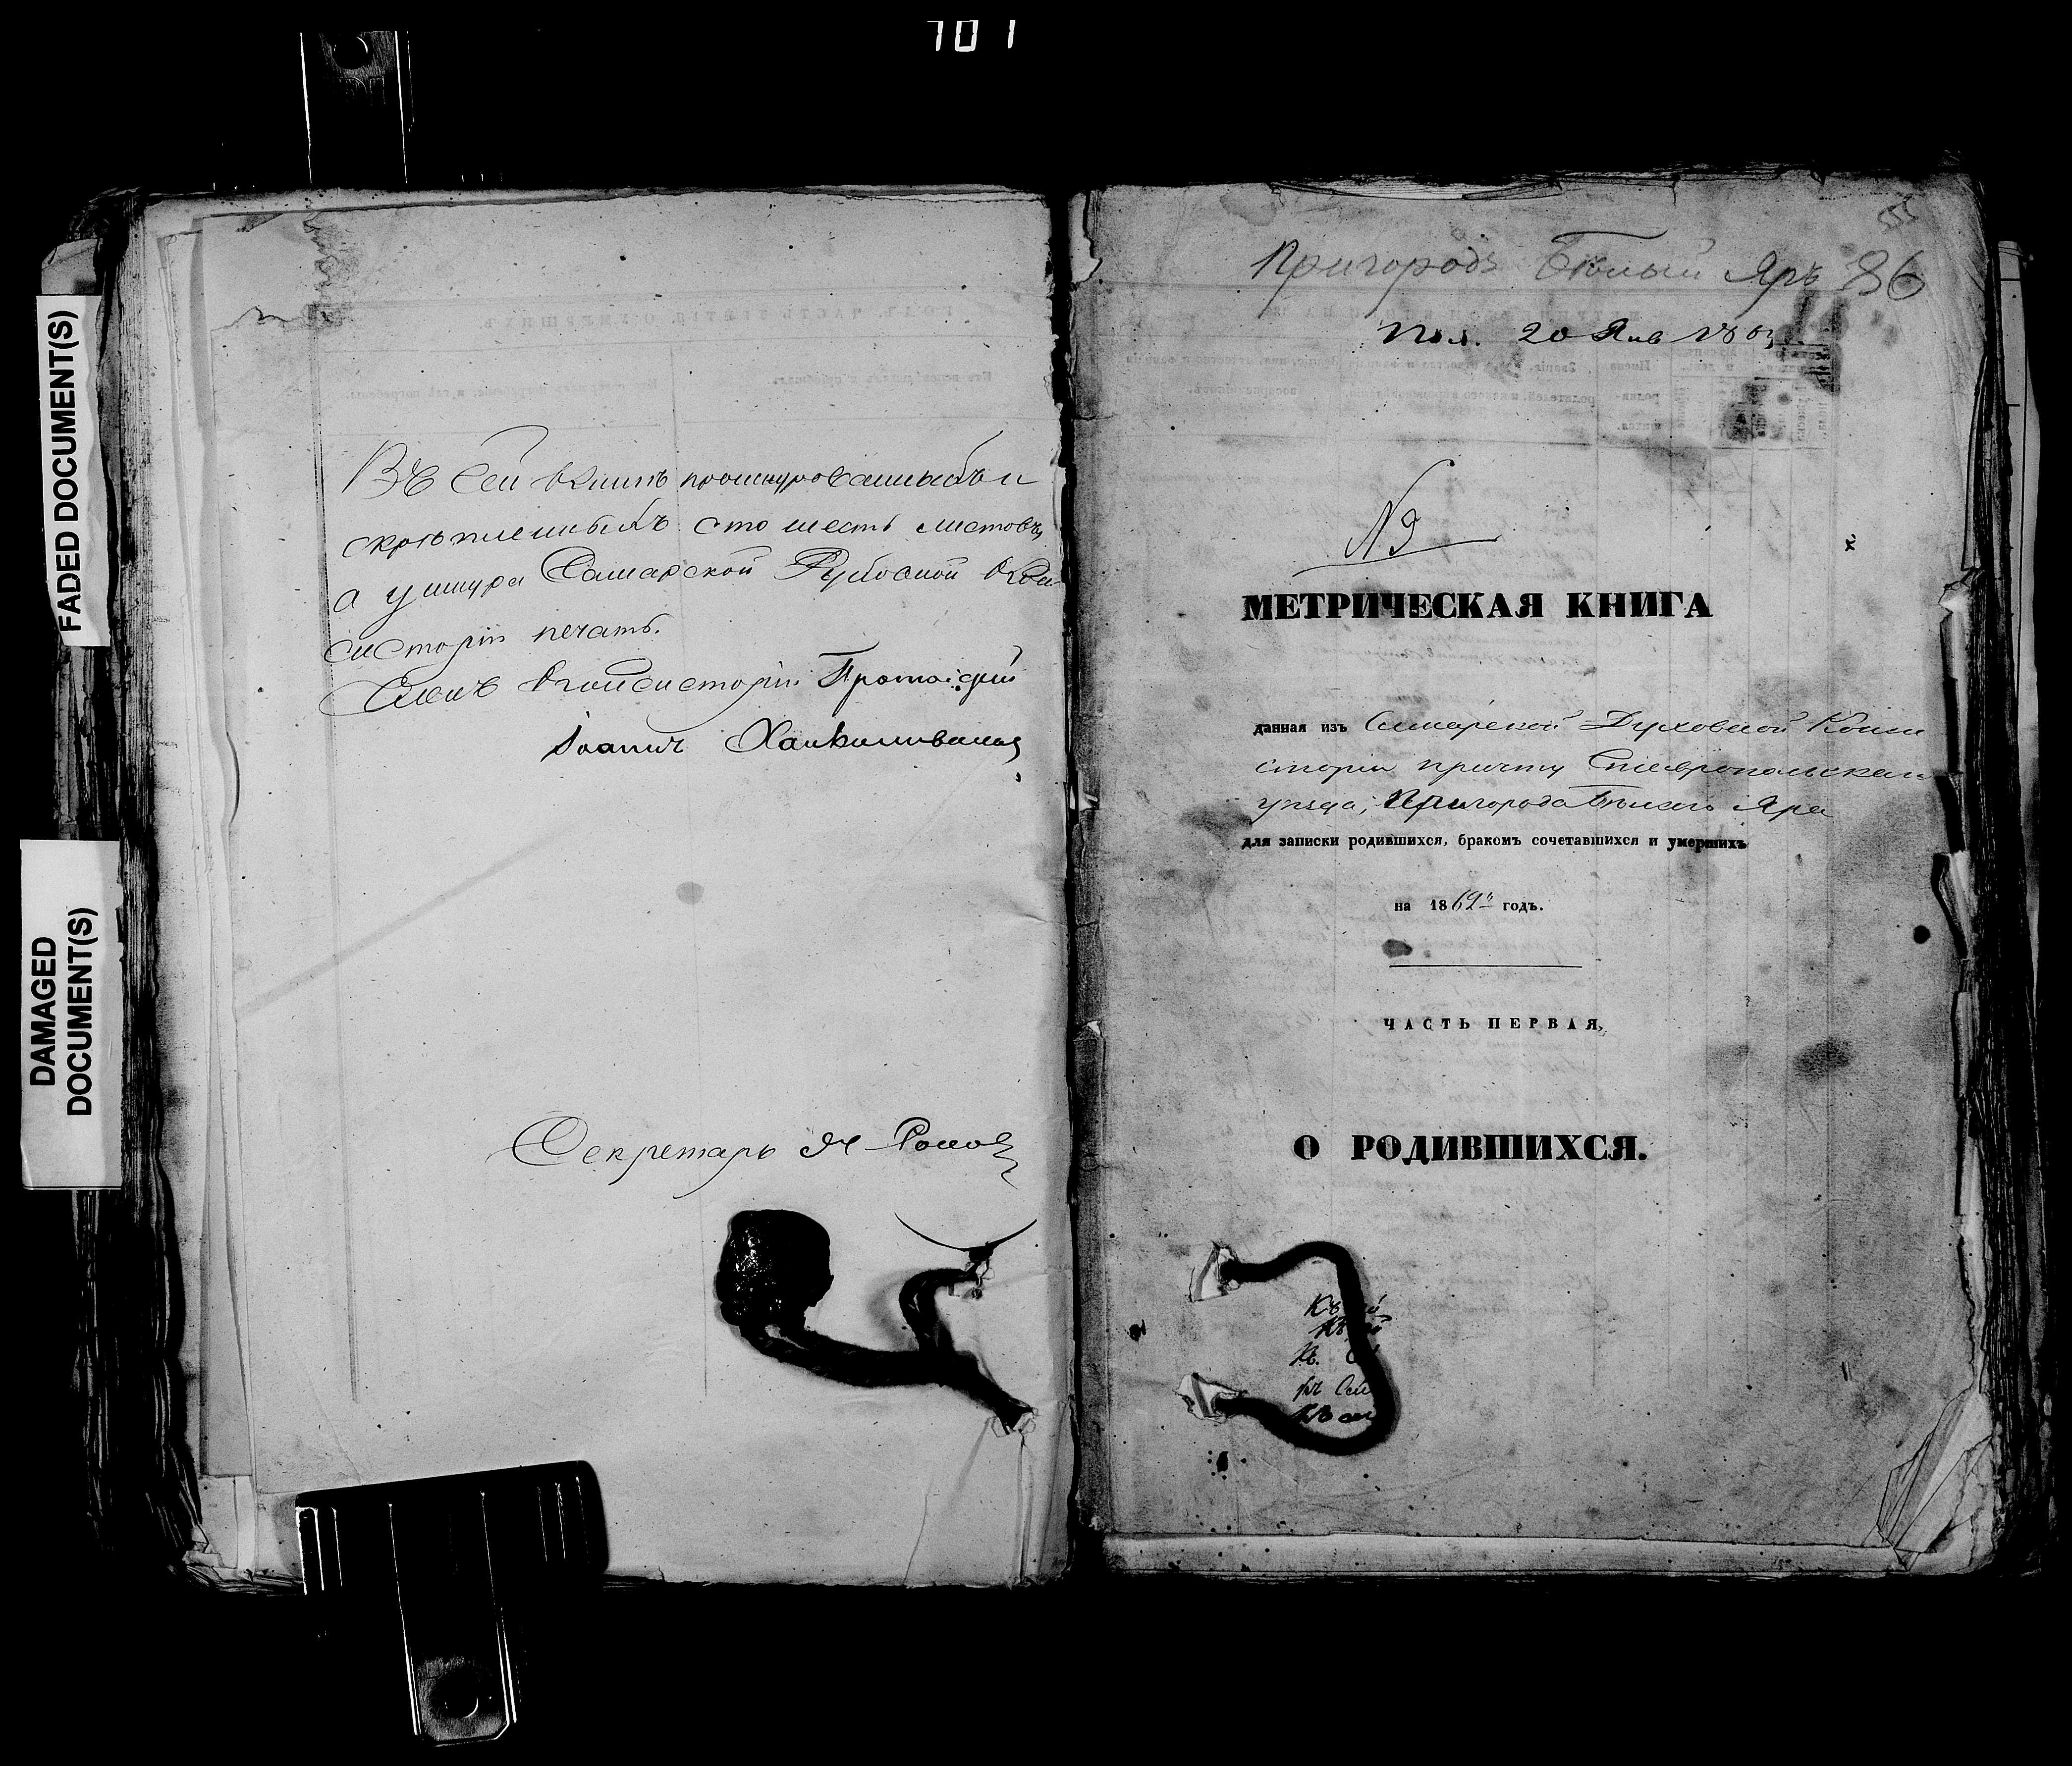 101
FADED DOCUMENT(S)
DAMAGED
DOCUMENT(S)
Въ сей книгѣ прошнурованныхъ и
скрѣпленныхъ сто шесть листовъ,
а у шнура Самарской Духовной Кон-
систоріи печать.
Членъ Консисторіи Протоіерей
Іоаннъ
Секретарь
555
Пригородъ Бѣлый Яръ 86
Пол. 20 Янв 1863
№
МЕТРИЧЕСКАЯ КНИГА
данная изъ Самарской Духовной Конси
сторіи причту Ставропольскаго
уѣзда, Пригорода Бѣлаго Яра
для записки родившихся, бракомъ сочетавшихся и умершихъ
на 1862й годъ.
ЧАСТЬ ПЕРВАЯ,
О РОДИВШИХСЯ.
Къ
Къ
къ Сей